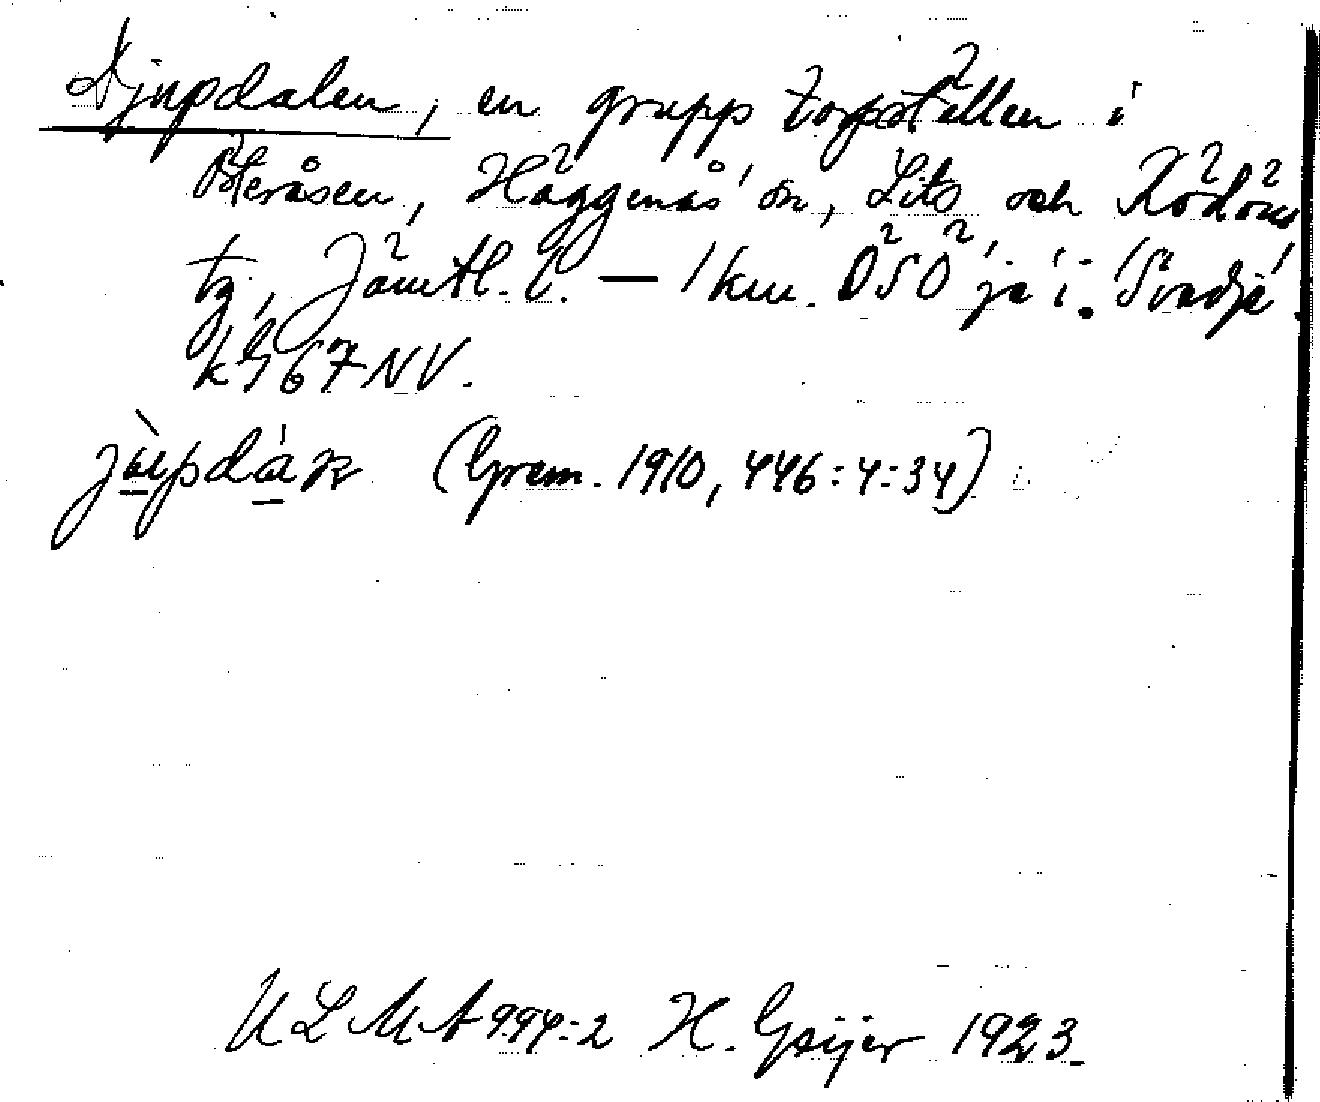 Djupdalen, en grupp torpställen i
Österåsen, Häggenås' sn, Lits och Rödöns
tg, Jämtl. l. — 1 km. OSO
k 67 NV.
(Grem. 1910, 446:4:34)
ULMA 994:2 H. Geijer 1923.